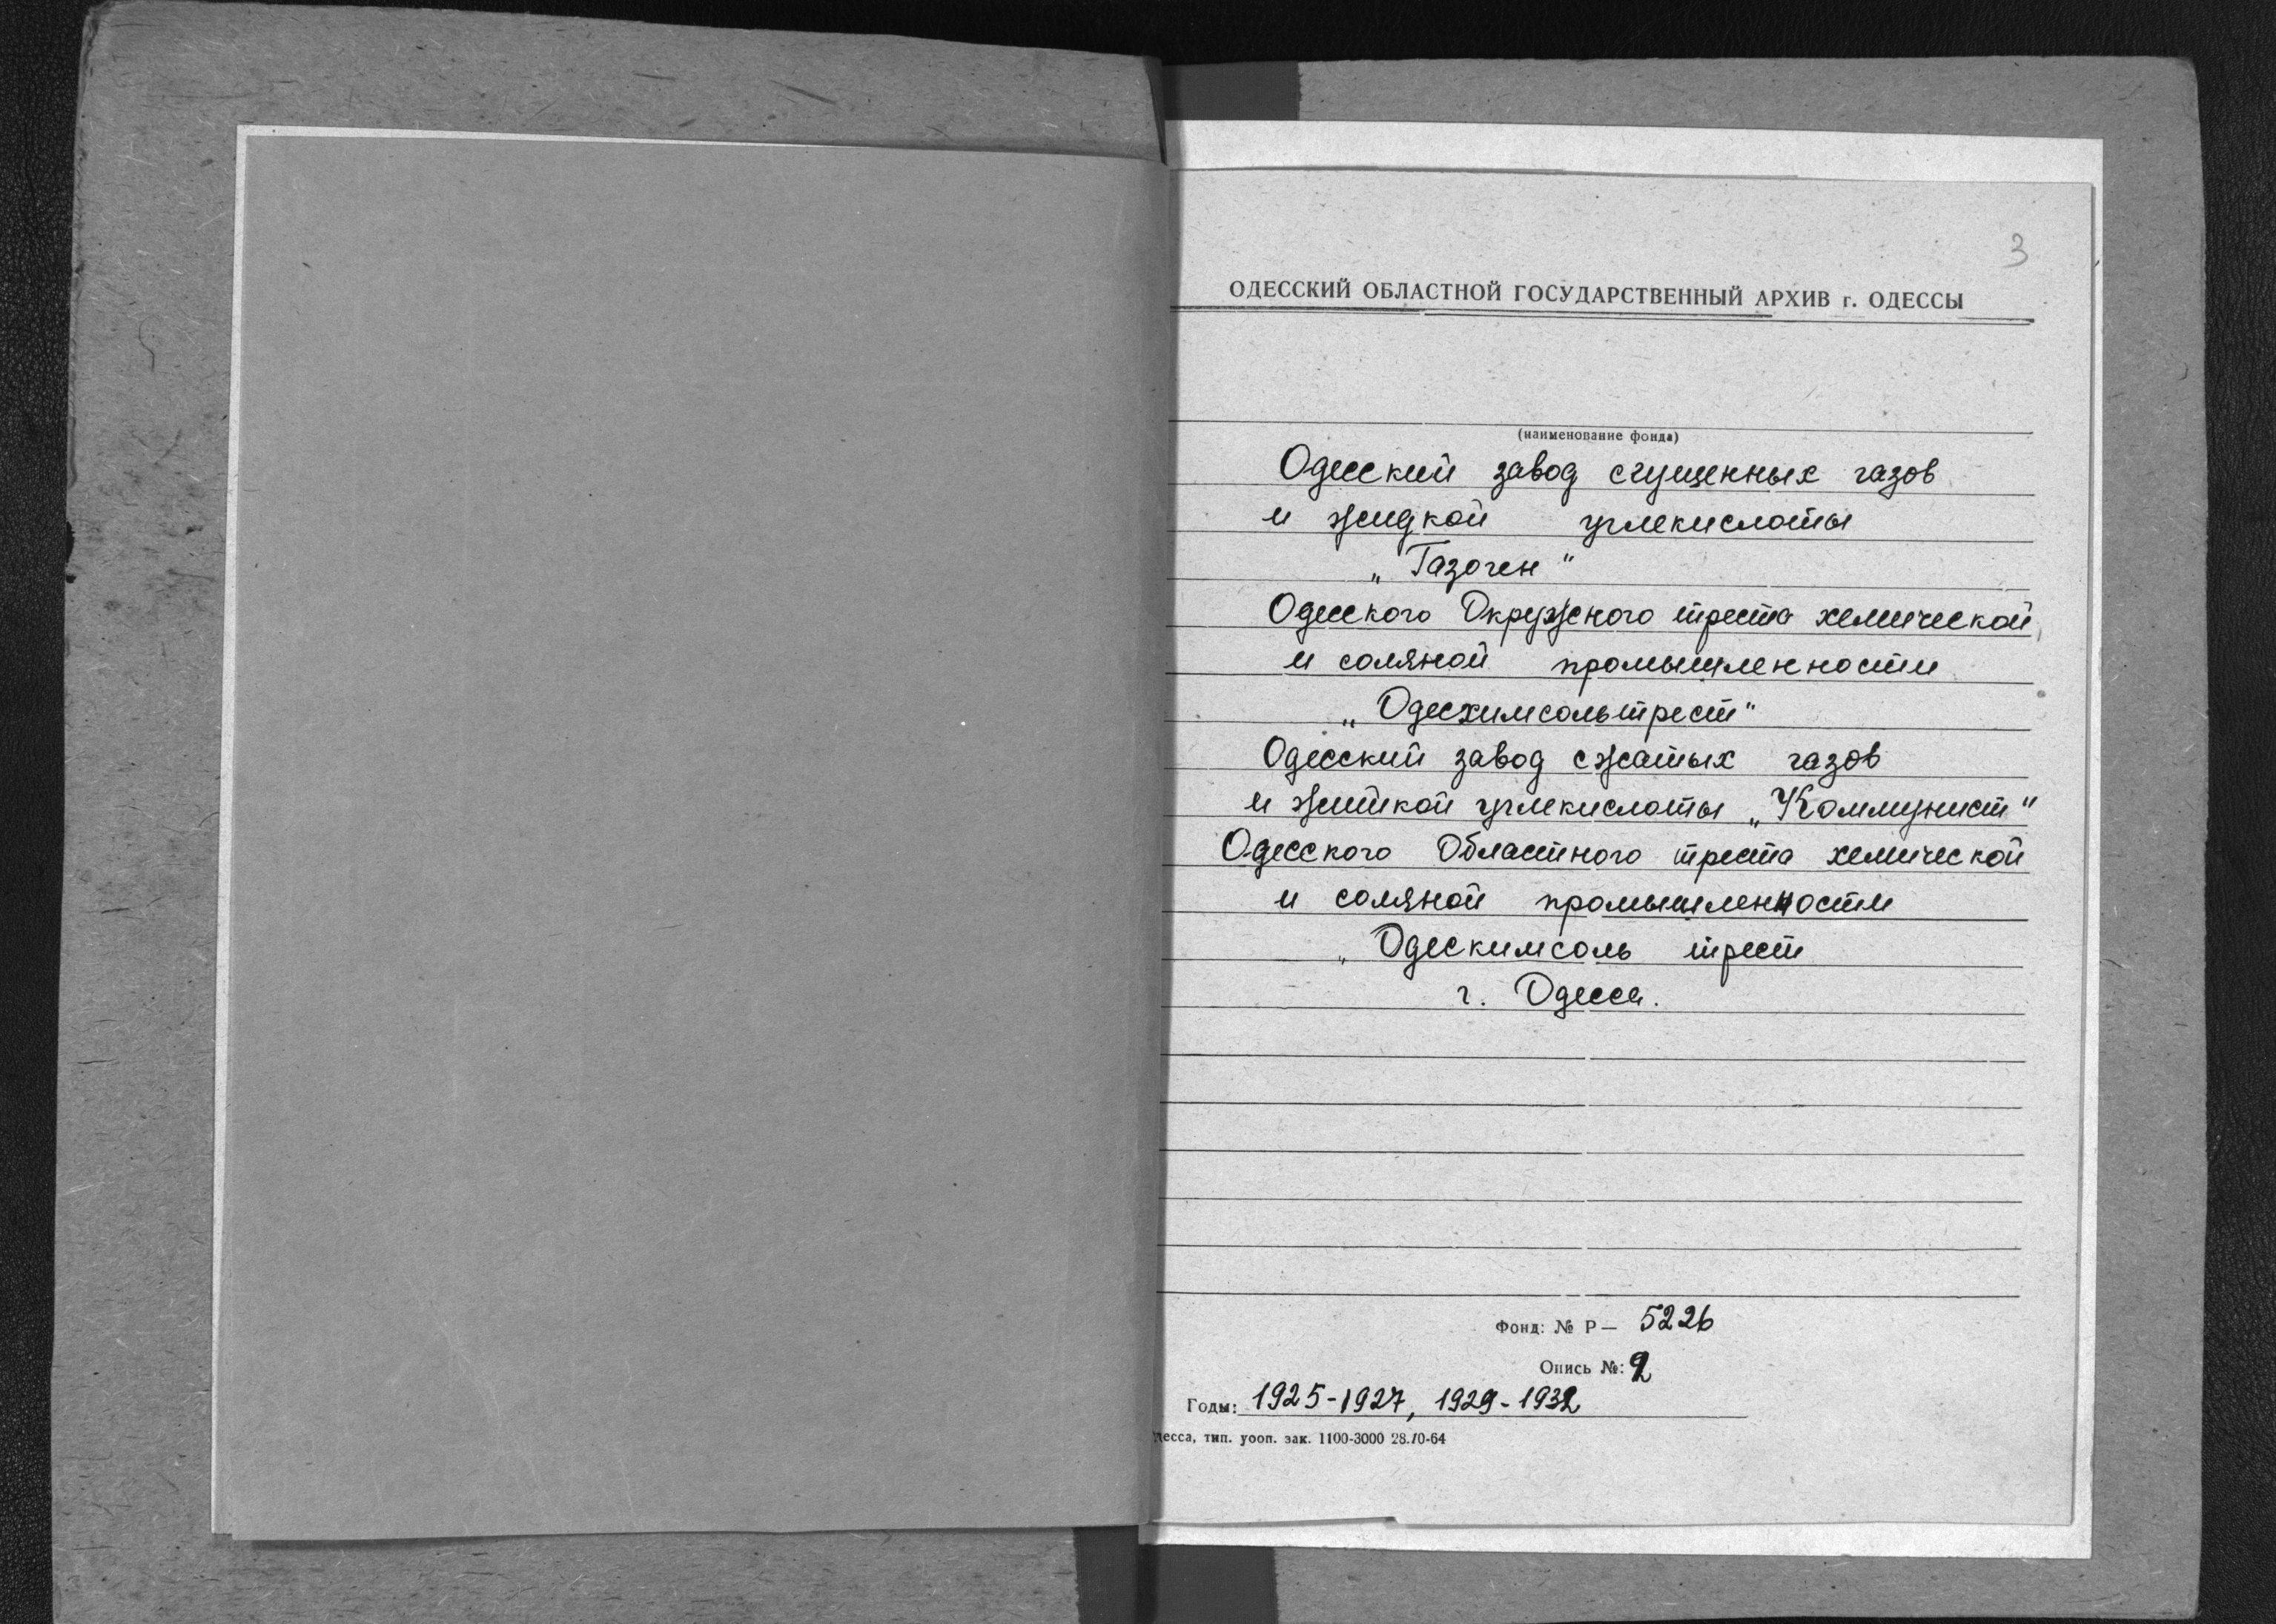 3
ОДЕССКИЙ ОБЛАСТНОЙ ГОСУДАРСТВЕННЫЙ АРХИВ г. ОДЕССЫ
(наименование фонда)
Одесский завод сгущенных газов
и жидкой углекислоты
„Газоген"
Одесского Окружного треста химической
и соляной промышленности
„Одесхимсольтрест"
Одесский завод сжатых газов
и житкой углекислоты „Коммунист"
Одесского Областного треста химической
и соляной промышленности
„Одесхимсоль трест
г. Одесса.
Фонд: № Р— 5226
Опись №: 2
Годы: 1925-1927, 1929-1932
десса, тип. уооп. зак. 1100-3000 28.10-64